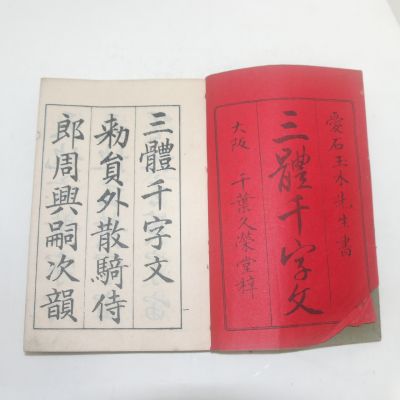 愛石玉水先生書
三體千字文
大阪 千葉久榮堂梓
三體千字文
勅員外散騎侍
郎周興嗣次韻